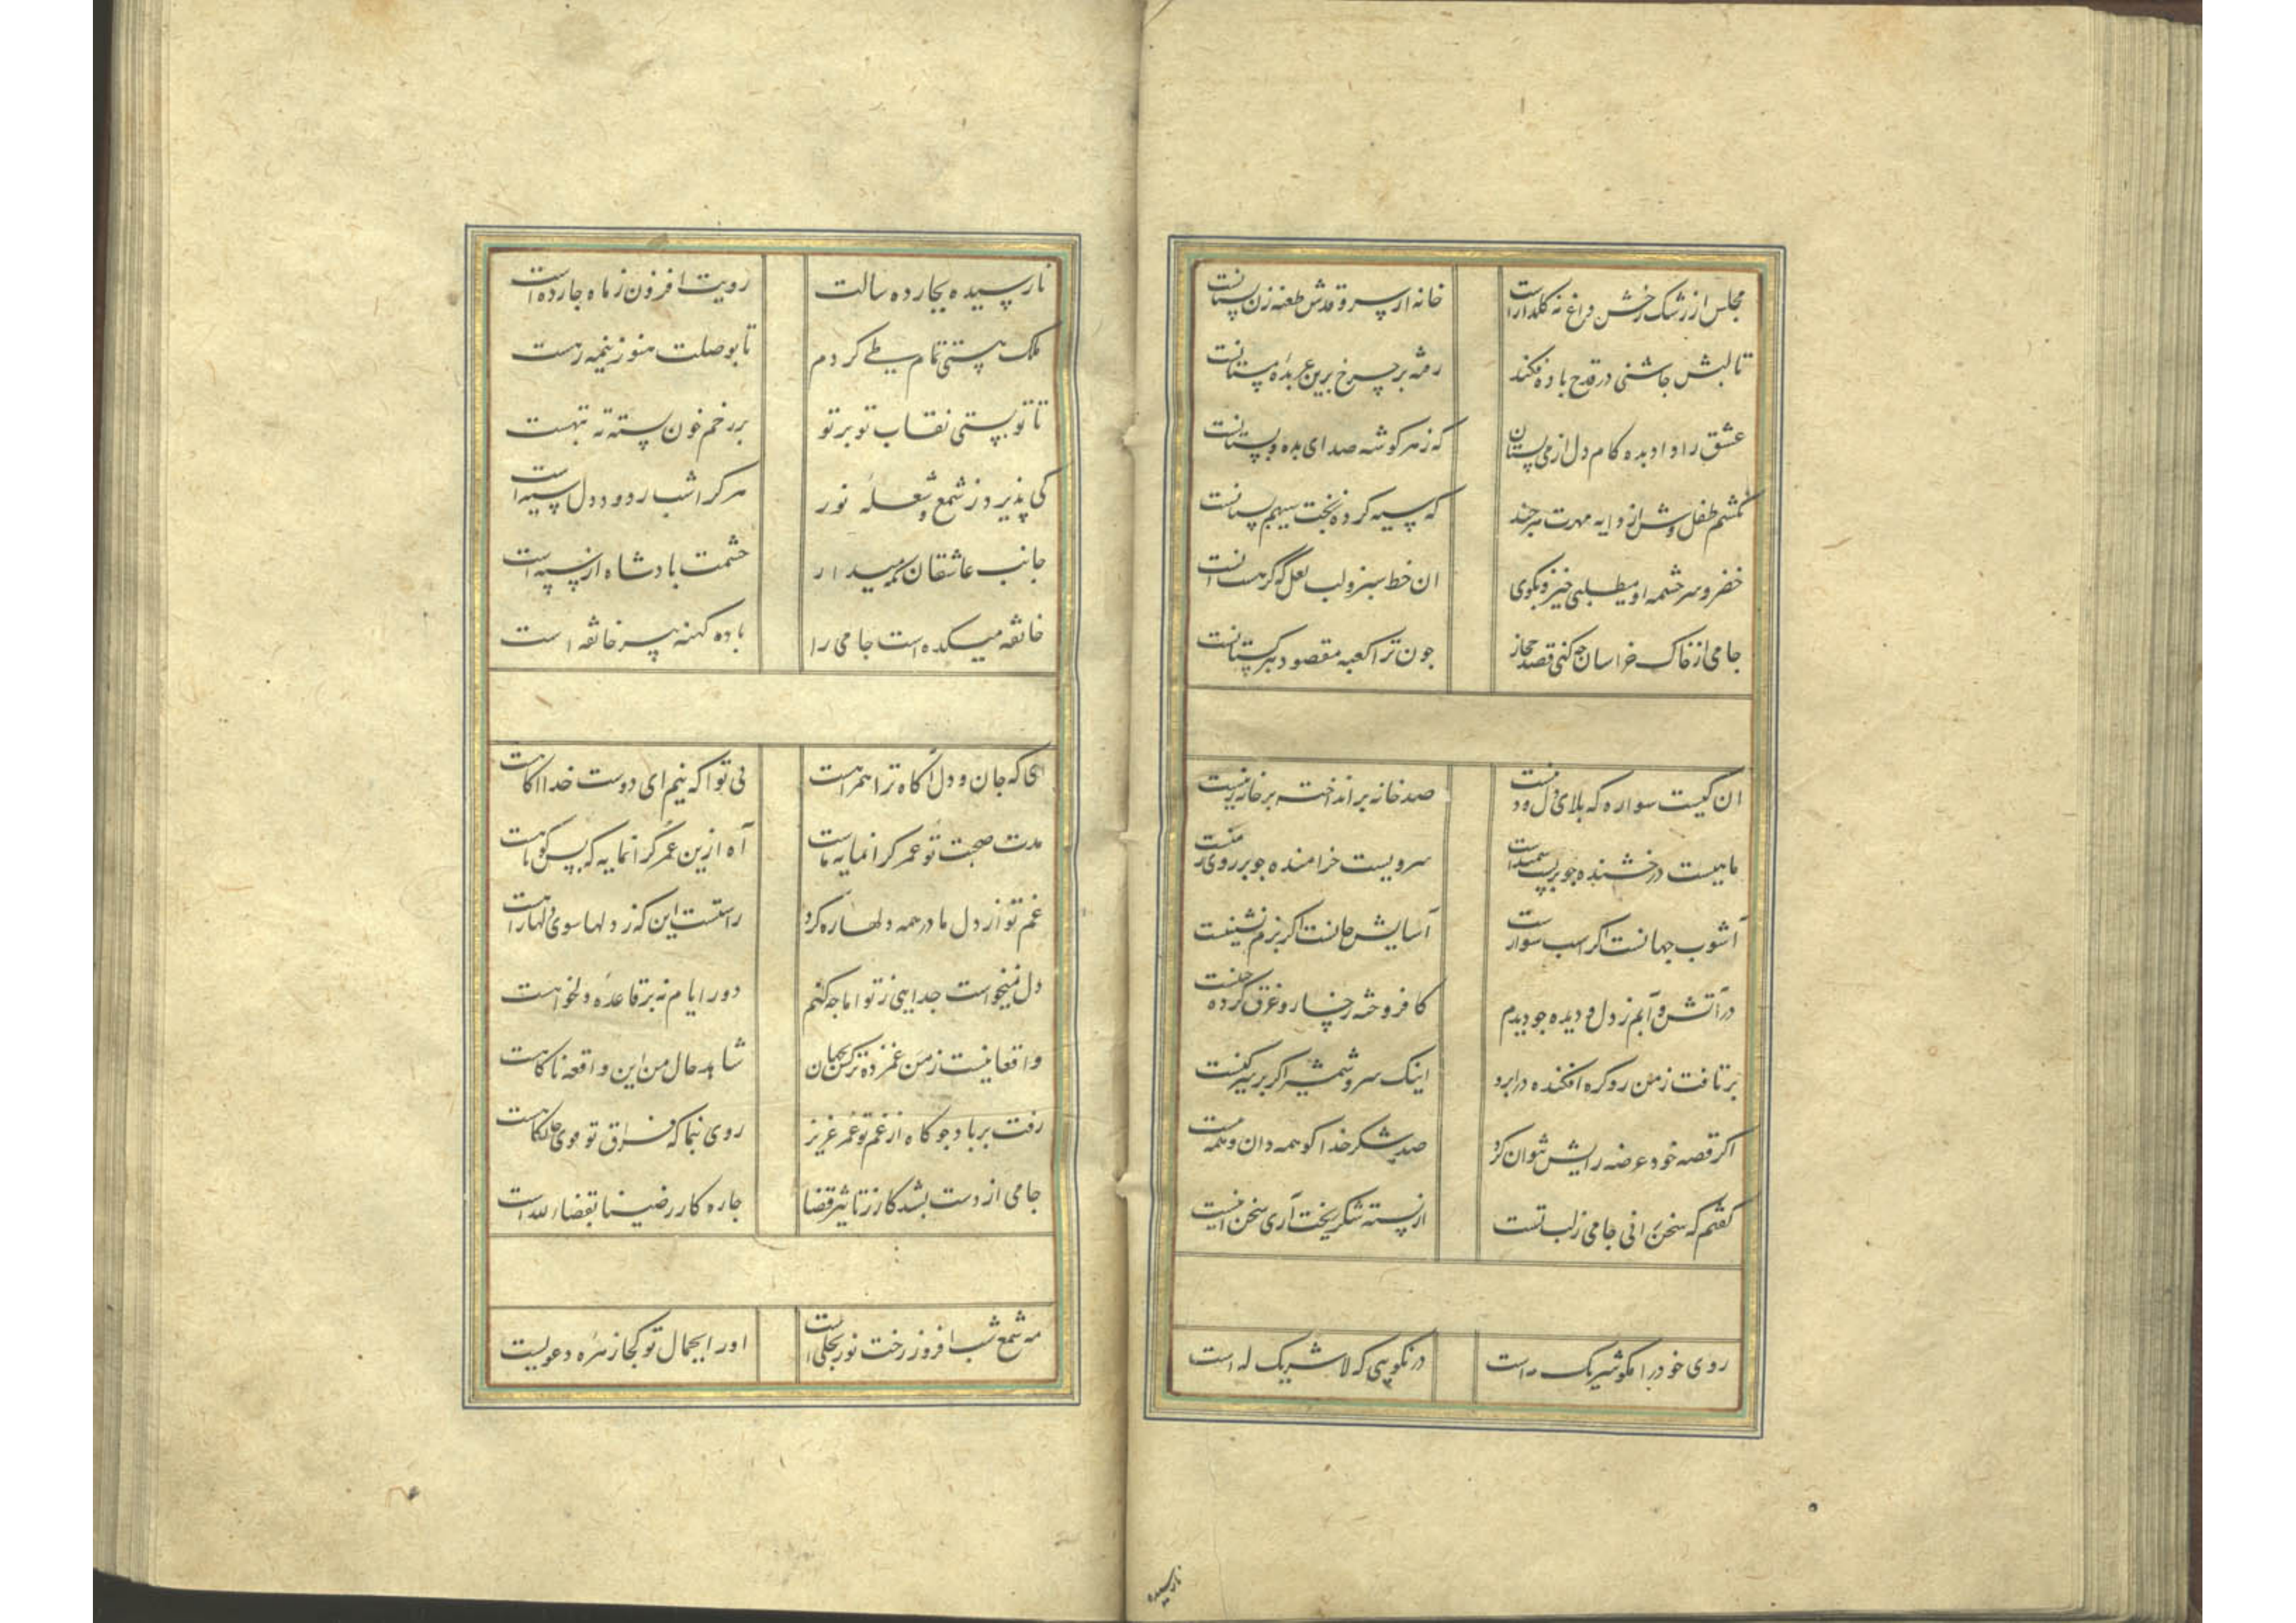 مجلس از رشک رخش داغ نه گلدارانست خانه از سرو قدش طعنه زن بستانست
تا لبش چاشنی در قدح باده فکند رفته بر چرخ برین عربده مستانست
عشق را داد بده کام دل از می بستان که ز هر گوشه صدای بده و بستانست
نکشم طفل وش از دایه مهرت هر چند که سیه کرده بخت سیهم پستانست
خضر و سرچشمه او میطلبی خیز و بگوی ان خط سبز و لب لعل که گر هست انست
جامی از خاک خراسان چه کنی قصد حجاز چون ترا کعبه مقصود بترکستانست
ان کیست سواره که بلای دل و دینست صد خانه بر انداخته بر خانه زینست
ماهیست درخشنده چو بر پشت سمندست سرویست خرامنده چو بر روی زمینست
آشوب جهانست اگر اسب سوارست آسایش جانست اگر بزم نشینست
در آتش و آبم ز دل و دیده چو دیدم کافروخته رخسار و عرق کرده جبینست
بر تافت ز من رو گره افکنده در ابرو اینک سر و شمشیر اگر بر سر کینست
گر قصه خود عرضه برایش نتوان کرد صد شکر خدا کو همه دان و همه بینست
گفتم که سخن رانی جامی ز لب تست از پسته شکر ریخت آری سخن اینست
روی خوب ترا مگو شریک مه است در نکویی که لا شریک له است
نارسیده
نارسیده بچارده سالت رویت افزون ز ماه چارده است
ملک هستی تمام طی کردم تا بوصلت هنوز نیمه رهست
تا تو بستی نقاب تو بر تو بر رخم خون بسته ته بتهست
کی پذیرد ز شمع و شعله نور هر کرا شب ز دود دل سیه است
جانب عاشقان نگه میدار حشمت پادشاه از سپه است
خانقه میکده است جامی را باده کهنه پیر خانقه است
ای که جان و دل آگاه ترا همراهست بی تو آگه نیم ای دوست خدا آگاهست
مدت صحبت تو عمر گرانمایه ماست آه ازین عمر گرانمایه که بس کوتاهست
غم تو از دل ما در همه دلها ره کرد راستست این که ز دلها سوی دلها راهست
دل نمیخواست جدایی ز تو اما چه کنم دور ایام نه بر قاعده دلخواهست
واقعا نیست ز من غمزده تر کس بجهان شاهد حال من این واقعه ناگاهست
رفت بر باد چو کاه از غم تو عمر عزیز روی بنما که فراق تو قوی جانکاهست
جامی از دست بشد کار ز تاثیر قضا چاره کار رضینا بقضاء الله است
مه شمع شب افروز رخت نور تجلیست او را بجمال تو کجا زهره دعویست